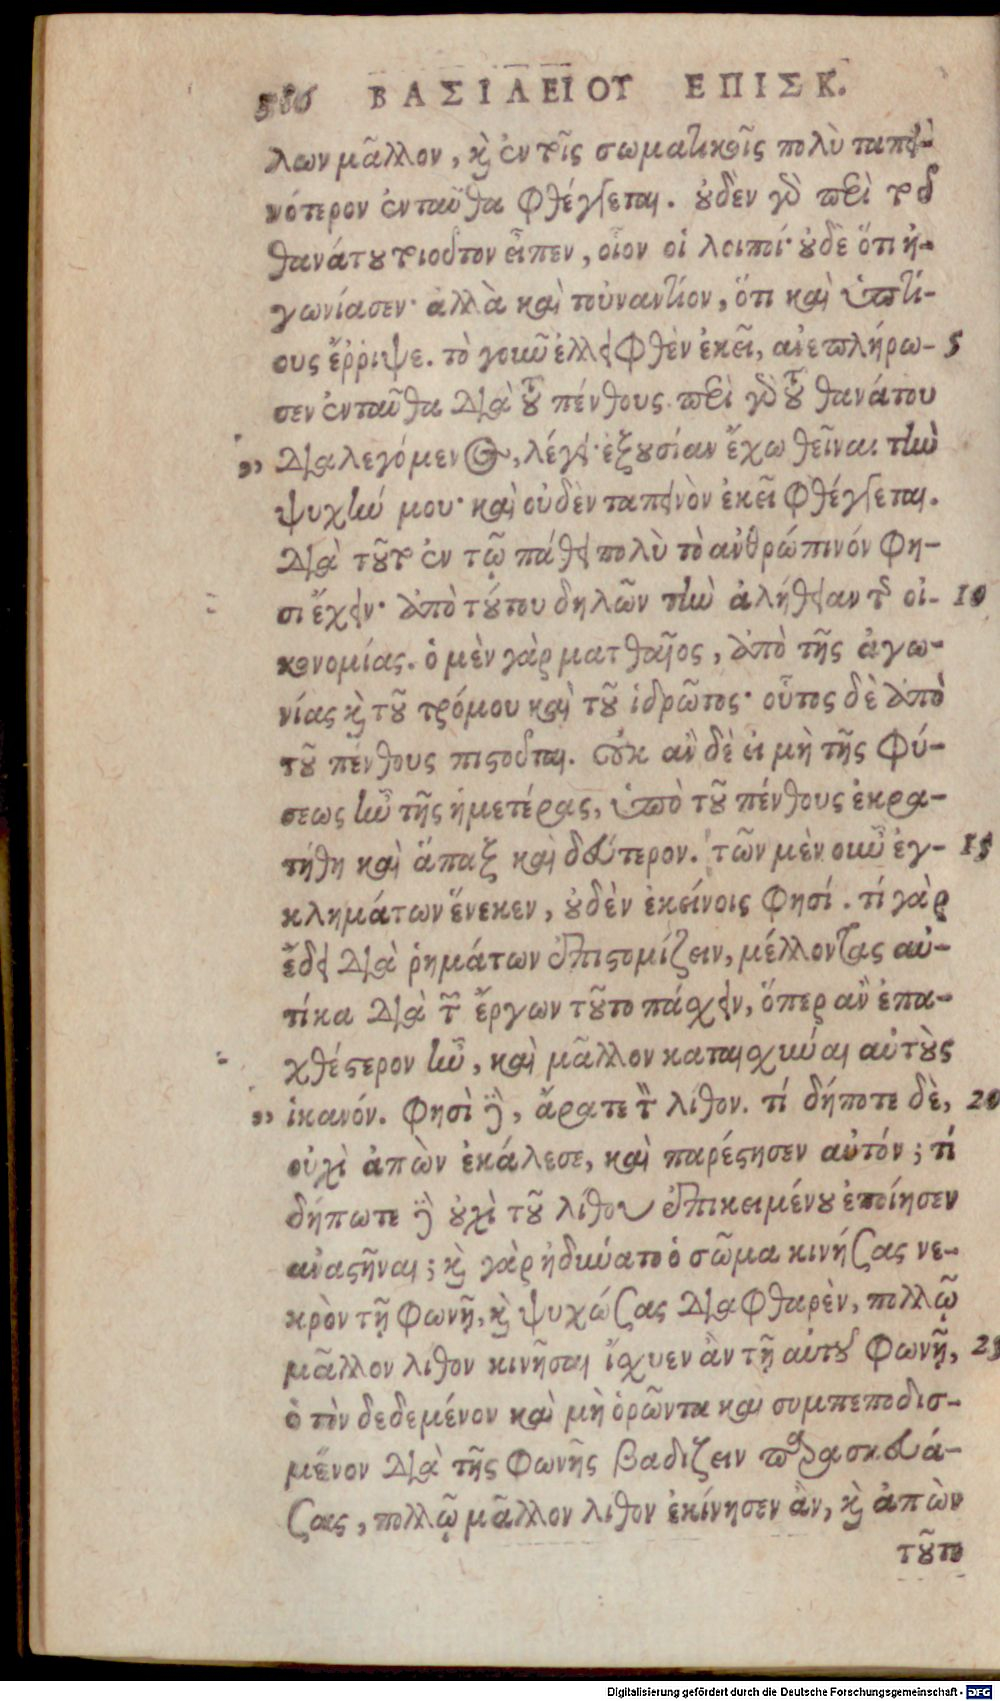 586 ΒΑΣΙΛΕΙΟΥ ΕΠΙΣΚ.
λων μᾶλλον, καὶ ἐν τοῖς σωματικοῖς πολὺ ταπει-
νότερον ἐνταῦθα φθέγγεται. οὐδὲν γὰρ περὶ τοῦ
θανάτου τοιοῦτον εἶπεν, οἷον οἱ λοιποί· οὐδὲ ὅτι ἠ-
γωνίασεν· ἀλλὰ καὶ τοὐναντίον, ὅτι καὶ ὑπτί-
ους ἔῤῥιψε. τὸ γοῦν ἐλλειφθὲν ἐκεῖ, ἀνεπλήρω- 5
σεν ἐνταῦθα διὰ τοῦ πένθους. περὶ γὰρ τοῦ θανάτου
„ διαλεγόμενος, λέγει· ἐξουσίαν ἔχω θεῖναι τὴν
ψυχήν μου· καὶ οὐδὲν ταπεινὸν ἐκεῖ φθέγγεται.
διὰ τοῦτο ἐν τῷ πάθει πολὺ τὸ ἀνθρώπινόν φη-
σι ἔχειν· ἀπὸ τούτου δηλῶν τὴν ἀλήθειαν τῆς οἰ- 10
κονομίας. ὁ μὲν γὰρ ματθαῖος, ἀπὸ τῆς ἀγω-
νίας καὶ τοῦ τρόμου καὶ τοῦ ἱδρῶτος· οὗτος δὲ ἀπὸ
τοῦ πένθους πιστοῦται. Οὐκ ἂν δὲ εἰ μὴ τῆς φύ-
σεως ἦν τῆς ἡμετέρας, ὑπὸ τοῦ πένθους ἐκρα-
τήθη καὶ ἅπαξ καὶ δεύτερον. τῶν μὲν οὖν ἐγ- 15
κλημάτων ἕνεκεν, οὐδὲν ἐκείνοις φησί. τί γὰρ
ἔδει διὰ ῥημάτων ἐπιστομίζειν, μέλλοντας αὐ-
τίκα διὰ τῶν ἔργων τοῦτο πάσχειν, ὅπερ ἂν ἐπα-
χθέστερον ἦν, καὶ μᾶλλον καταισχῦναι αὐτοὺς
„ ἱκανόν. φησὶ οὖν, ἄρατε τὸν λίθον. τί δήποτε δὲ, 20
οὐχὶ ἀπὼν ἐκάλεσε, καὶ παρέστησεν αὐτόν; τί
δήπωτε δὲ οὐχὶ τοῦ λίθου ἐπικειμένου ἐποίησεν
ἀναστῆναι; καὶ γὰρ ἠδύνατο ὁ σῶμα κινήσας νε-
κρὸν τῇ φωνῇ, καὶ ψυχώσας διαφθαρὲν, πολλῷ
μᾶλλον λίθον κινῆσαι ἴσχυεν ἂν τῇ αὐτοῦ φωνῇ, 25
ὁ τὸν δεδεμένον καὶ μὴ ὁρῶντα καὶ συμπεποδισ-
μένον διὰ τῆς φωνῆς βαδίζειν παρασκευά-
σας, πολλῷ μᾶλλον λίθον ἐκίνησεν ἂν, καὶ ἀπὼν
τοῦτο
Digitalisierung gefördert durch die Deutsche Forschungsgemeinschaft - DFG